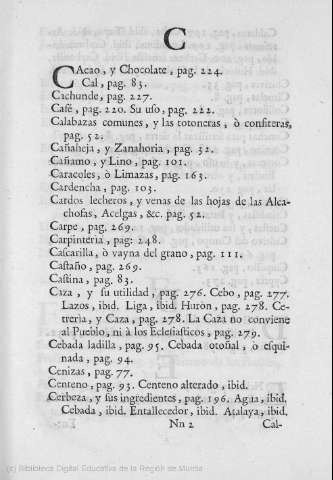 C
CAcao, y Chocolate, pag. 224.
Cal, pag. 83.
Cachunde, pag. 227.
Café, pag. 220. Su uso, pag. 222.
Calabazas comunes, y las totoneras, ò confiteras,
pag. 52.
Cañaheja, y Zanahoria, pag. 32.
Cañamo, y Lino, pag. 101.
Caracoles, ò Limazas, pag. 163.
Cardencha, pag. 103.
Cardos lecheros, y venas de las hojas de las Alca-
chofas, Acelgas, &c. pag. 52.
Carpe, pag. 269.
Carpinteria, pag: 248.
Cascarilla, ò vayna del grano, pag. 111.
Castaño, pag. 269.
Castina, pag. 83.
Caza, y su utilidad, pag. 276. Cebo, pag. 277.
Lazos, ibid. Liga, ibid. Huron, pag. 278. Ce-
treria, y Caza, pag. 278. La Caza no conviene
al Pueblo, ni à los Eclesiasticos, pag. 279.
Cebada ladilla, pag. 95. Cebada otoñal, ò esqui-
nada, pag. 94.
Cenizas, pag. 77.
Centeno, pag. 93. Centeno alterado, ibid.
Cerbeza, y sus ingredientes, pag. 196. Agua, ibid.
Cebada, ibid. Entallecedor, ibid. Atalaya, ibid.
Nn 2 Cal-
(c) Biblioteca Digital Educativa de la Región de Murcia